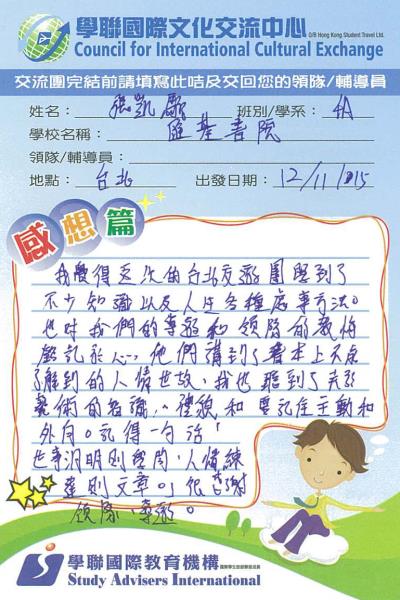 學聯國際文化交流中心
O/B Hong Kong Student Travel Ltd.
Council for International Cultural Exchange
交流團完結前請填寫此咭及交回您的領隊/輔導員
姓名： 張凱 班別/學系： 4A
學校名稱： 匯基書院
領隊/輔導員：
地點： 台北 出發日期： 12/11/2015
感想篇
我覺得是次的台北交遊團學到了
不少知識以及人生各種處事方法。
也對我們的導遊和領隊的教悔
銘記於心，他們講到了書本上不應
了解到的人情世故，我也聽到了
藝術的知識、禮貌和要記住主動和
外向。記得一句話「
世事洞明則學問，人情練
達則文章。」很多謝
領隊、導遊。
學聯國際教育機構
Study Advisers International